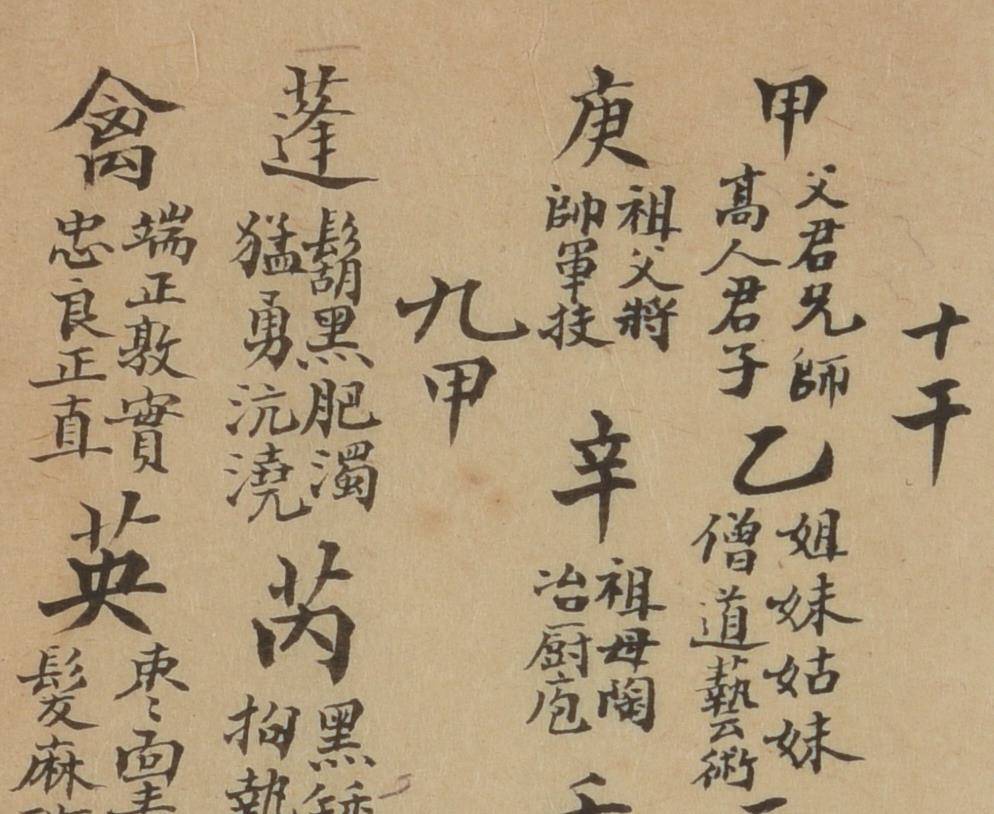 十干
甲
父君兄師
髙人君子
乙
姐妹姑妹
僧道藝術
庚
祖父將
帥軍技
辛
祖母陶
冶厨庖
九甲
蓬
鬍黑肥濁
猛勇沆澆
芮
黑
拘執
禽
端正敦實
忠良正直
英
枣面
髮麻